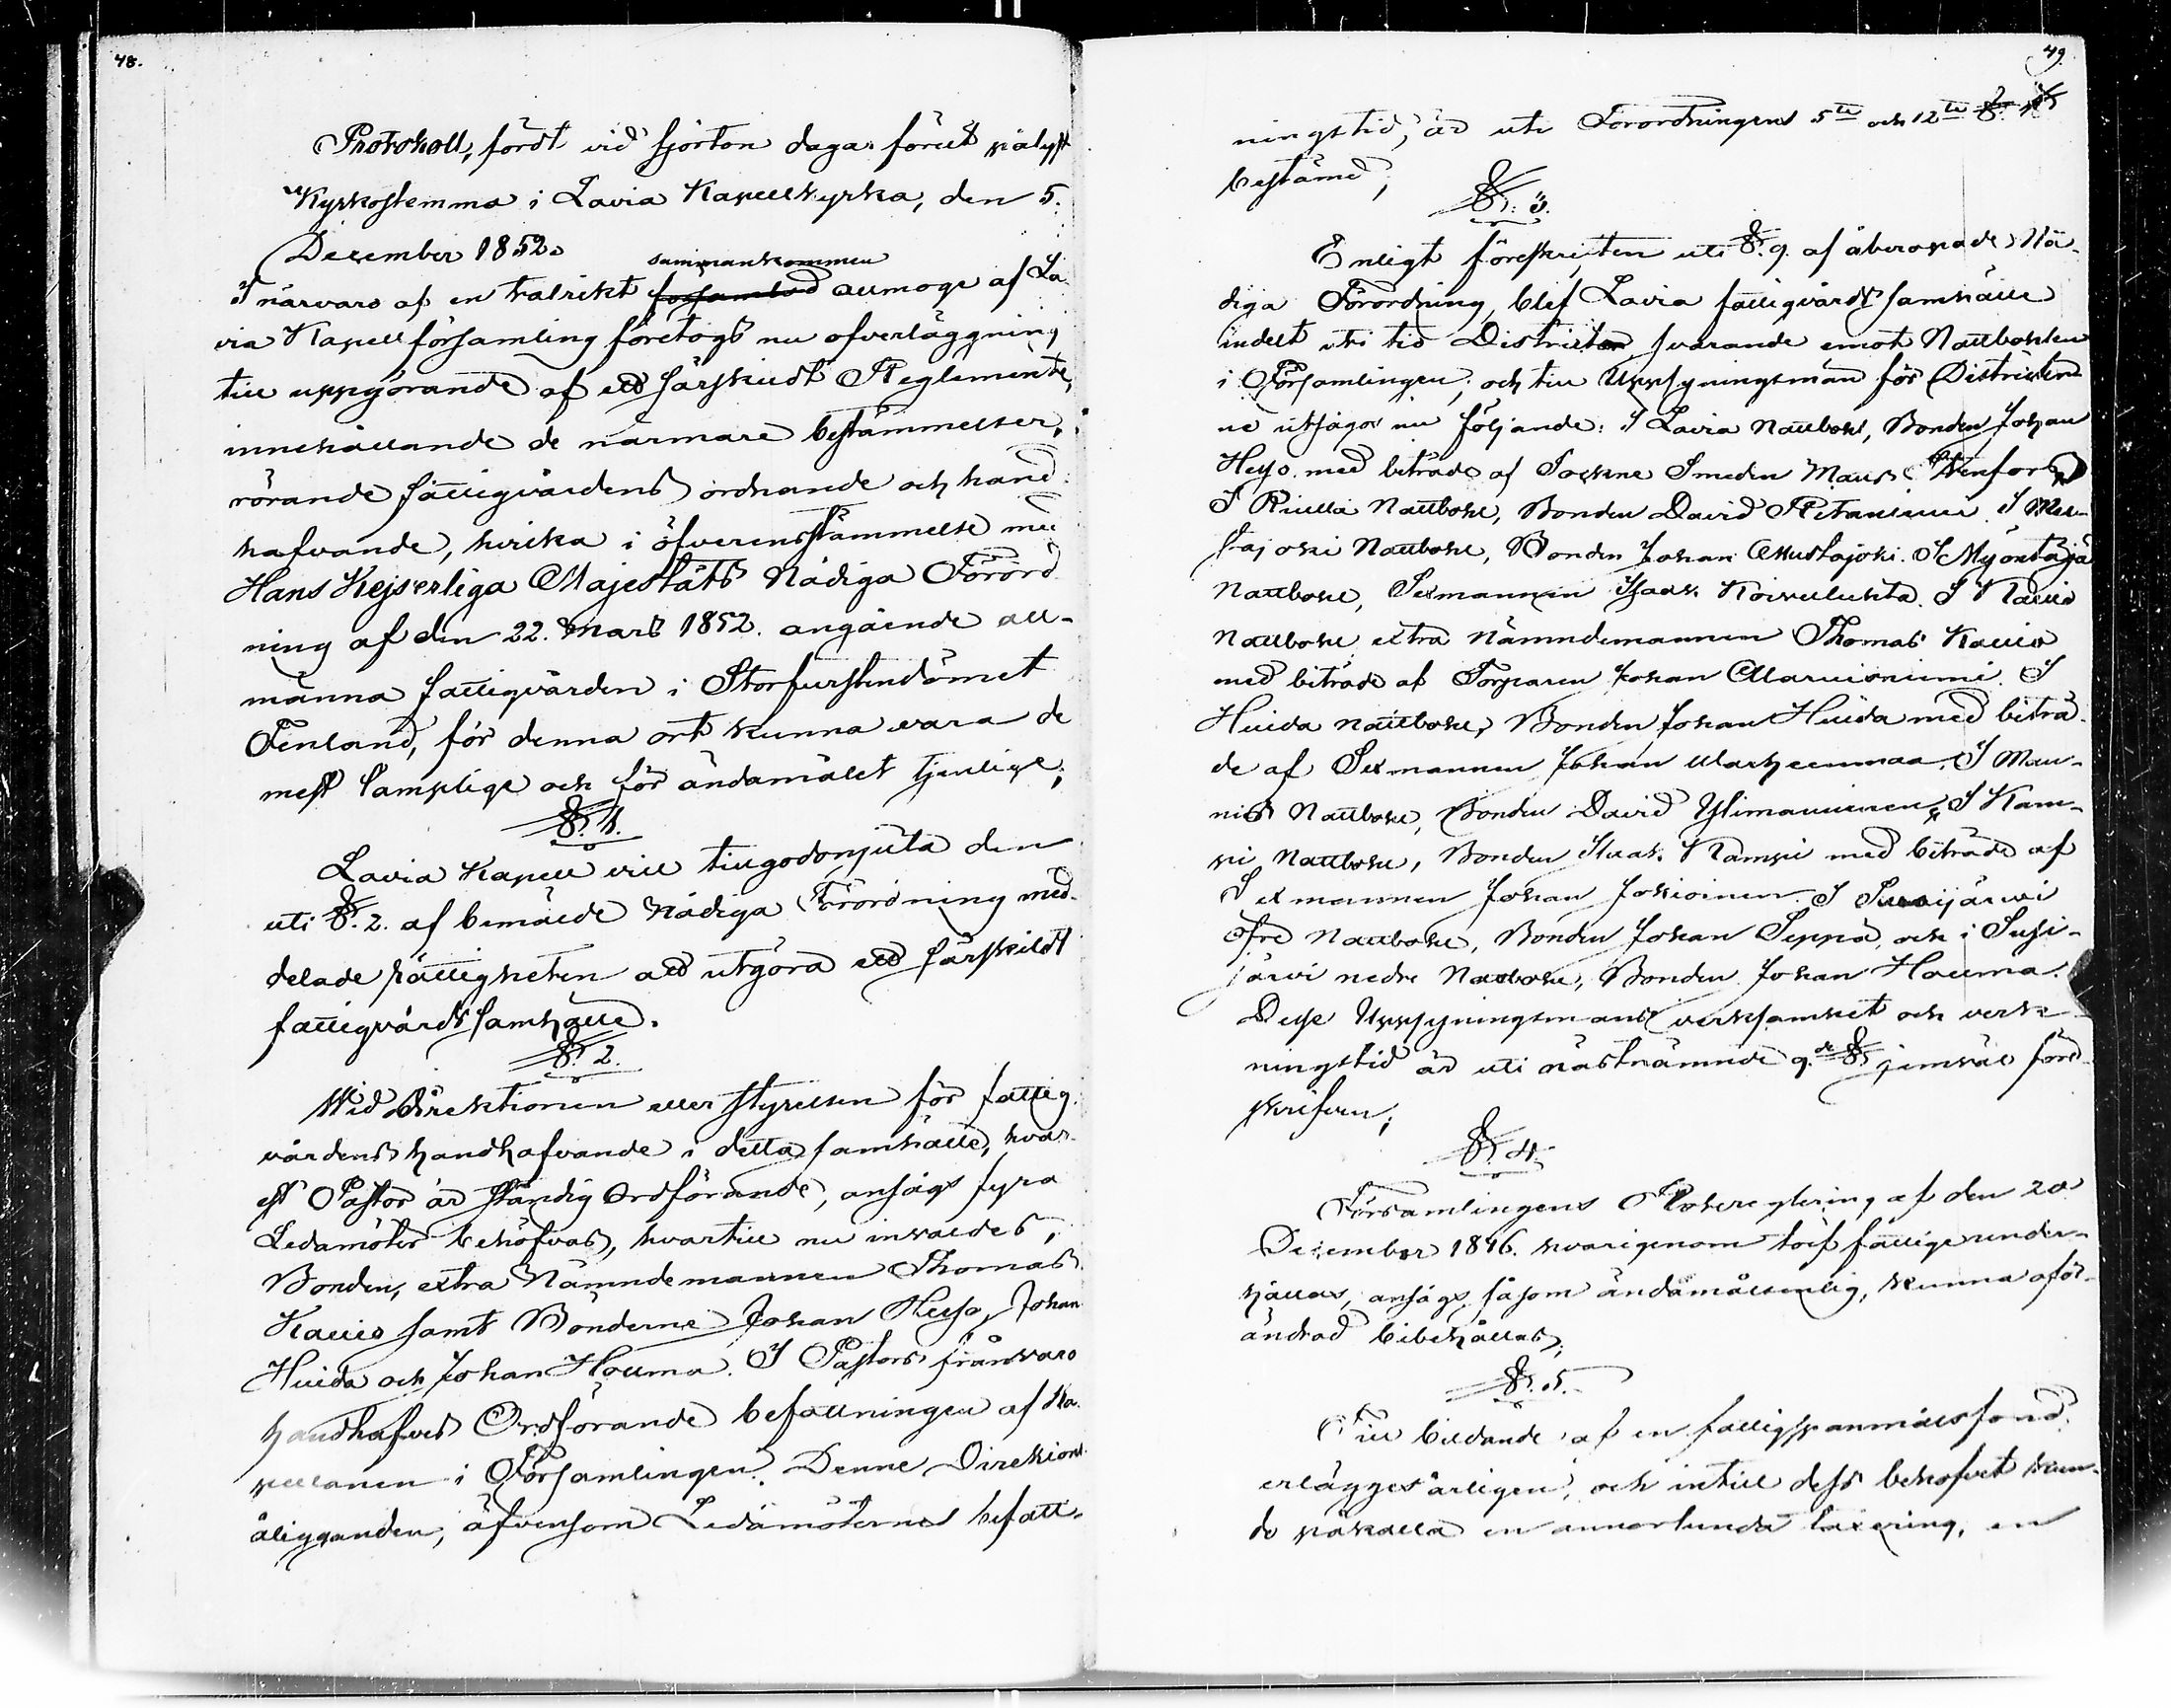 48.
Protokoll, fördt vid fjorton dagar förut pålyst
Kyrkostemma i Lavia Kapellkyrka, den 5.
December 1852.
sammankommen
I närvaro af en talrikt församlad allmoge af La-
via Kapellförsamling företogs nu öfverläggning
till uppgörande af ett särskildt Reglemente,
innehållande de närmare bestämmelser,
rörande fattigvårdens ordnande och hand-
hafvande, hvilka i öfverensstämmelse med
Hans Kejserliga Majestäts Nådiga Förord
ning af den 22. Mars 1852. angående all-
männa fattigvården i Storfurstendömet
Finland, för denna ort kunna vara de
mest lämplige och för ändamålet tjenlige;
§. 1.
Lavia Kapell vill tillgodonjuta den
uti §. 2. af bemälde Nådiga Förordning med-
delade rättigheten att utgöra ett särskildt
fattigvårds samhälle.
§. 2.
Wid Direktionen eller styrelsen för fattig-
vårdens handhafvande i detta samhälle, hvar-
est Pastor är ständig Ordförande, ansågs fyra
Ledamöter behöfvas, hvartill nu invaldes,
Bonden, extra Nämndemannen Thomas
Kallio samt Bönderne Johan Heijo, Johan
Huida och Johan Houma. I Pastors frånvaro
handhafves Ordförande befattningen af Ka-
pellanen i Församlingen. Denne Direktions
åligganden, äfvensom Ledamöternes befatt-
49.
ningstid, är uti Förordningens 5te och 12te §§
bestämd;
§. 3.
Enligt föreskriften uti §. 9. af åberopade Nå-
diga Förordning, blef Lavia fattigvårds samhälle
indelt uti tio Distrikter svarande emot Nattbohlen
i Församlingen; och till Uppsyningsmän för Distrikter-
ne utsågos nu följande: I Lavia Nattbohl, Bonden Johan
Heijo med biträde af Sockne Smeden Mats Stenfors
I Riiella Nattbohl, Bonden David Retaniemi. I Mus-
tajoki Nattbohl, Bonden Johan Mustajoki. I Myöntäjä
Nattbohl, Sexmannen Isaak Koivuluhta. I Kallio
Nattbohl extra Nämndemannen Thomas Kallio
med biträde af Torparen Johan Marviniemi. I
Huida Nattbohl, Bonden Johan Huida med biträ-
de af Sexmannen Johan Marheenmaa. I Man-
nis Nattbohl, Bonden David Ylimanninen, I Kam-
pi Nattbohl, Bonden Isaak Kampi med biträde af
Sexmannen Johan Jokioinen. I Susijärwi
öfre Nattbohl, Bonden Johan Seppä, och i Susi-
järvi nedre Nattbohl, Bonden Johan Houma.
Desse Uppsyningsmäns verksamhet och verk-
ningstid är uti nästnämnde 9.de § jemväl före-
skrifven;
§. 4.
Församlingens Rotereglering af den 20
December 1846. hvarigenom tolf fattige under-
hållas, ansågs såsom ändamålsenlig, kunna oför-
ändrad bibehållas;
§. 5.
Till bildande af en fattigspanmålsfond
erlägges årligen, och intill dess behofvet kun-
de påkalla en annorlunda taxering, en